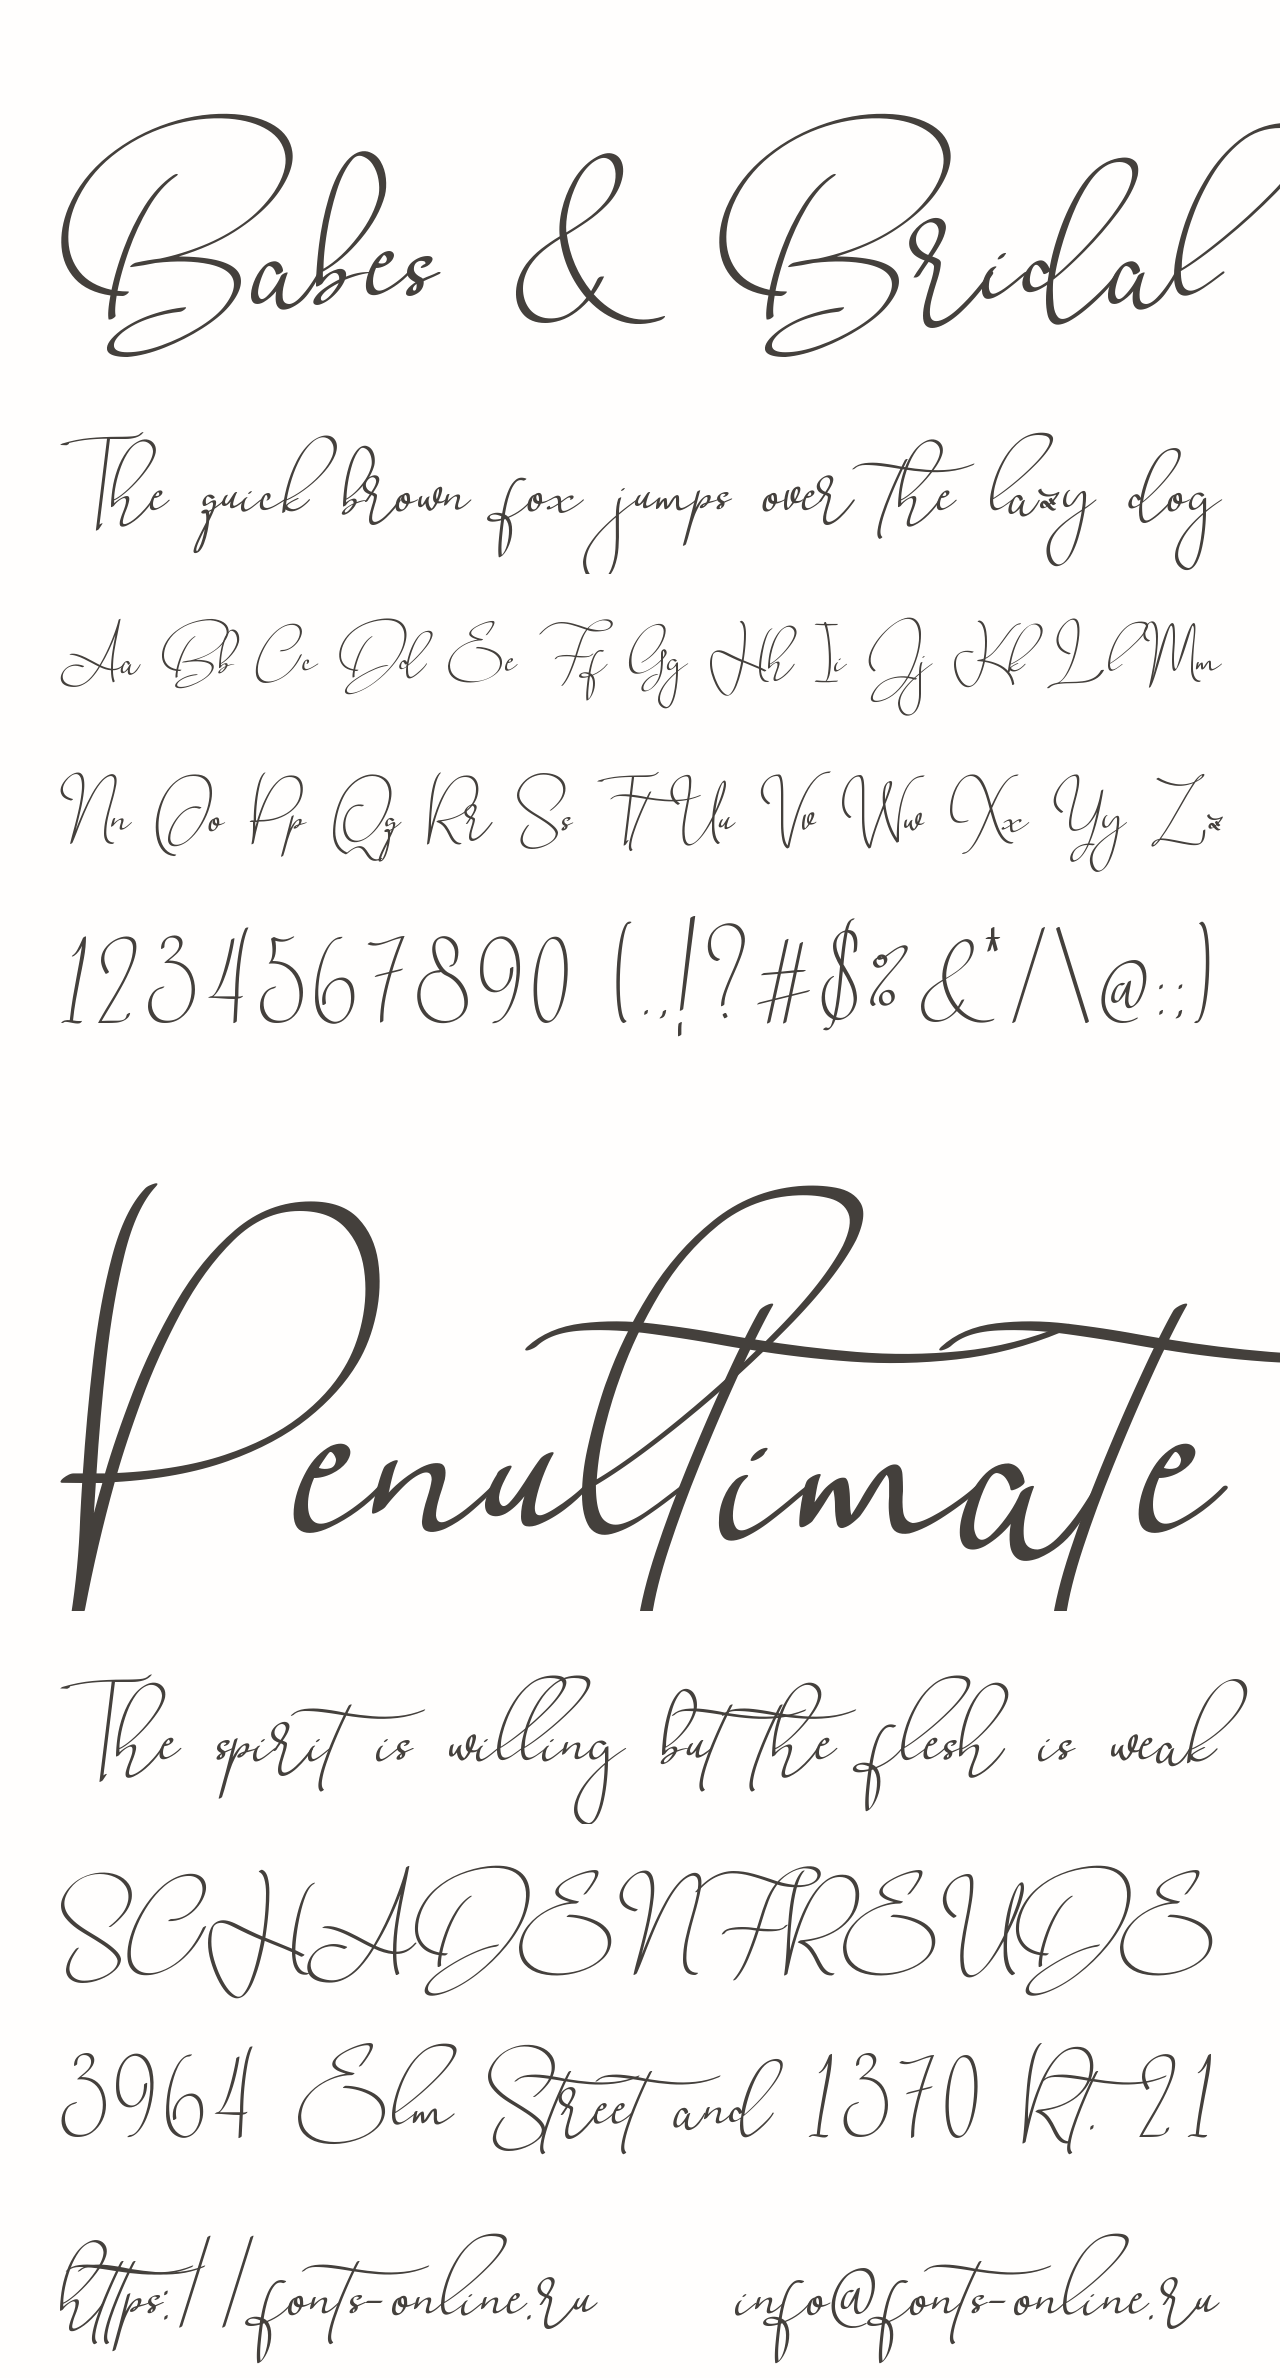 Babes & Bridal
The quick brown fox jumps over the lazy dog
Aa Bb Cc Dd Ee Ff Gg Hh Ii Jj Kk Ll Mm
Nn Oo Pp Qq Rr Ss Tt Uu Vv Ww Xx Yy Zz
1234567890 (.,!?#$%&*/\@:;)
Penultimate
The spirit is willing but the flesh is weak
SCHADENFREUDE
3964 Elm Street and 1370 Rt. 21
https://fonts-online.ru info@fonts-online.ru